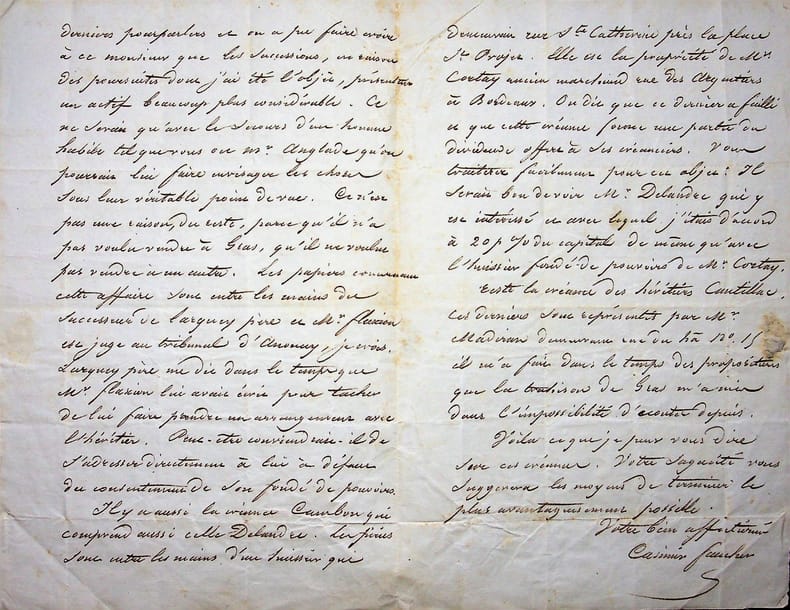 derniers pourparlers et on a pu faire croire
à ce monsieur que les successions, en raison
des poursuites dont j'ai été l'objet, présentent
un actif beaucoup plus considérable. Ce
ne serait qu'avec le secours d'un homme
habile tel que vous ou Mr. Anglade qu'on
pourrait lui faire envisager les choses
sous leur véritable point de vue. Ce n'est
pas une raison, du reste, parce qu'il n'a
pas voulu vendre à Gras, qu'il ne voulut
pas vendre à un autre. Les papiers concernant
cette affaire sont entre les mains du
successeur de Larquey père et Mr. flaxion
est juge au tribunal d'Anonay, je crois.
Larquey père me dit dans le temps que
Mr. flaxion lui avait écrit pour tacher
de lui faire prendre un arrangement avec
l'héritier. Peut-être conviendrait-il de
s'adresser directement à lui à défaut
du consentement de son fondé de pouvoirs.
Il y a aussi la créance Cambon qui
comprend aussi celle Delandre. Les pièces
sont entre les mains d'un huissier qui
demeurait rue Ste Catherine près la place
St. Projet. Elle est la propriété de Mr.
Cortay ancien marchand rue des Argentiers
à Bordeaux. On dit que ce dernier a failli
et que cette créance forme une partie du
dividende offert à ses créanciers. Vous
traiterez facilement pour cet objet. Il
serait bon de voir Mr. Delandre qui y
est intéressé et avec lequel j'étais d'accord
à 20 p % du capital de même qu'avec
l'huissier fondé de pouvoirs de Mr. Cortay.
Reste la créance des héritiers Cantillac.
Ces derniers sont représentés par Mr.
Madiran demeurant rue du hâ No. 15
il m'a fait dans le temps des propositions
que la trahison de Gras m'a mis
dans l'impossibilité d'écouter depuis.
Voilà ce que je puis vous dire
sur ces créances. Votre sagacité vous
suggerera les moyens de terminer le
plus avantageusement possible.
Votre bien affectionné
Casimir faucher